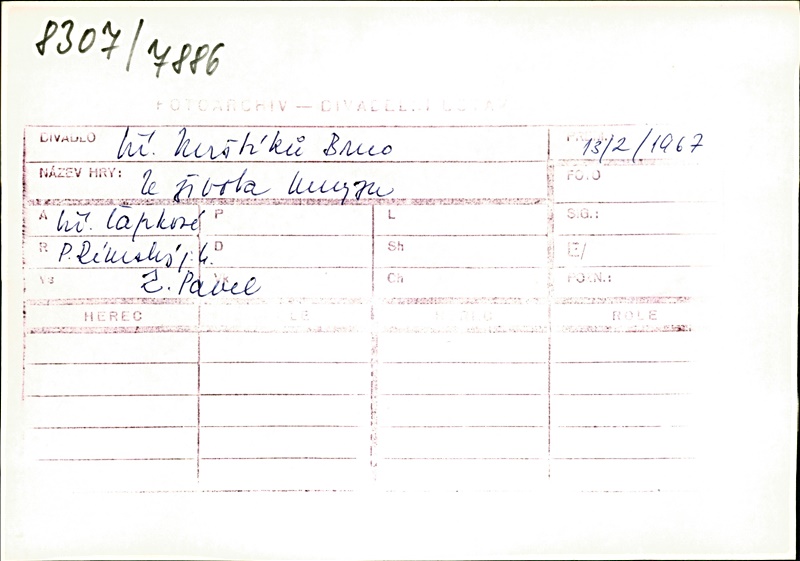 8307/7886
FOTOARCHIV — DIVADELNÍ ÚSTAV
DIVADLO bř. Mrštíků Brno PREM. 13/2/1967
NÁZEV HRY: Ze života hmyzu FOTO
A bř. Čapkové P L SIG.:
R P. Rímský j. h. D Sh E/
Vs Z. Pavel Ch POZN.:
HEREC ROLE HEREC ROLE